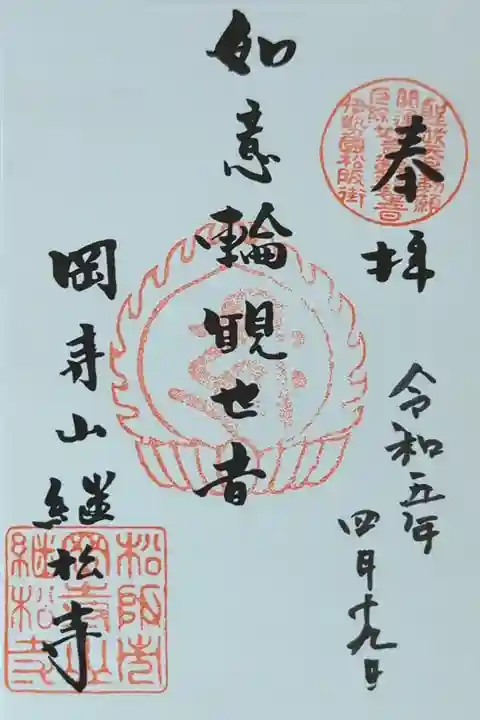 奉拝
令和五年
四月十九日
如意輪観世音
岡寿山継松寺
松阪市
岡寺山
継松寺